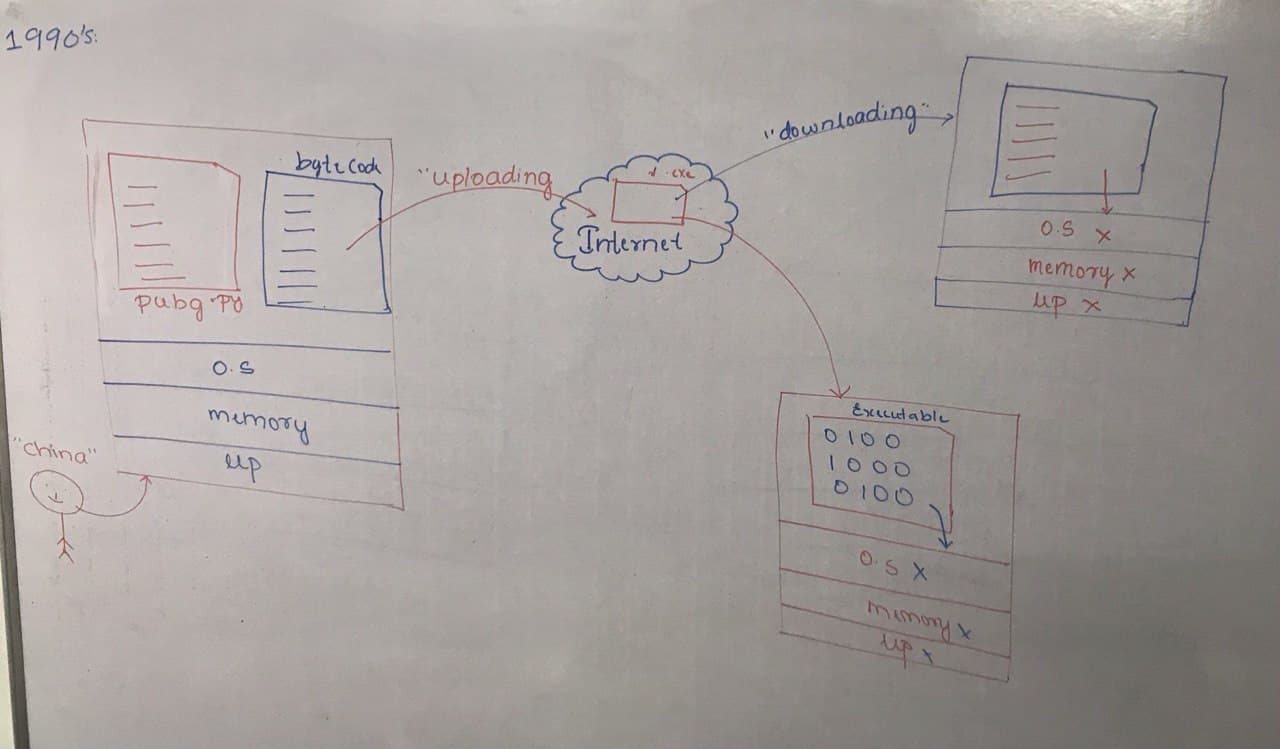 1990's:
bytecode
pubg
O.S
memory
up
"china"
"uploading
.exe
Internet
"downloading"
O.S x
memory x
up x
Executable
0100
1000
0100
O.S x
memory x
up x